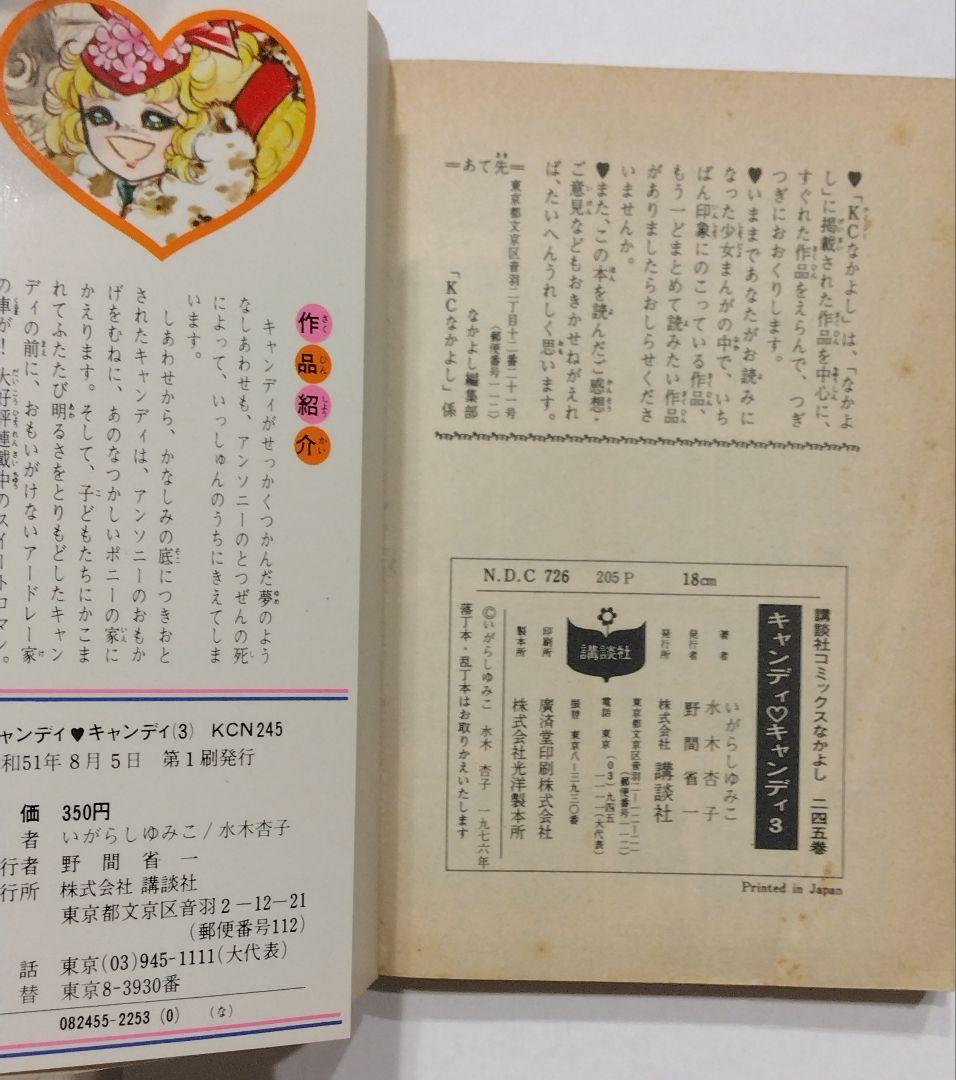 作品紹介
キャンディがせっかくつかんだ夢のよう
なしあわせも、アンソニーのとつぜんの死
によって、いっしゅんのうちにきえてしま
います。
しあわせから、かなしみの底につきおと
されたキャンディは、アンソニーのおもか
げをむねに、あのなつかしいポニーの家に
かえります。そして、子どもたちにかこま
れてふたたび明るさをとりもどしたキャン
ディの前に、おもいがけないアードレー家
の車が!大好評連載中のスイートロマン。
ャンディ♥キャンディ(3) KCN245
和51年8月5日 第1刷発行
価 350円
者 いがらしゆみこ/水木杏子
行者 野間省一
行所 株式会社 講談社
東京都文京区音羽2-12-21
(郵便番号112)
話 東京(03)945-1111(大代表)
替 東京8-3930番
082455-2253 (0) (な)
♥「KCなかよし」は、「なかよ
し」に掲載された作品を中心に、
すぐれた作品をえらんで、つぎ
つぎにおおくりします。
♥いままであなたがお読みに
なった少女まんがの中で、いち
ばん印象にのこっている作品、
もう一どまとめて読みたい作品
がありましたらおしらせくださ
いませんか。
♥また、この本を読んだご感想・
ご意見などもおきかせねがえれ
ば、たいへんうれしく思います。
=あて先=
東京都文京区音羽二丁目十二番二十一号
(郵便番号一一二)
なかよし編集部
「KCなかよし」係
N.D.C 726 205P 18cm
講談社コミックスなかよし 二四五巻
キャンディ♡キャンディ3
著者 いがらしゆみこ
水木杏子
発行者 野間省一
発行所 株式会社 講談社
東京都文京区音羽二-一二-二一
(郵便番号一一二)
電話 東京(03)九四五
一一一一(大代表)
振替 東京八-三九三〇番
講談社
印刷所 廣済堂印刷株式会社
製本所 株式会社光洋製本所
©いがらしゆみこ 水木杏子 一九七六年
落丁本・乱丁本はお取りかえいたします
Printed in Japan